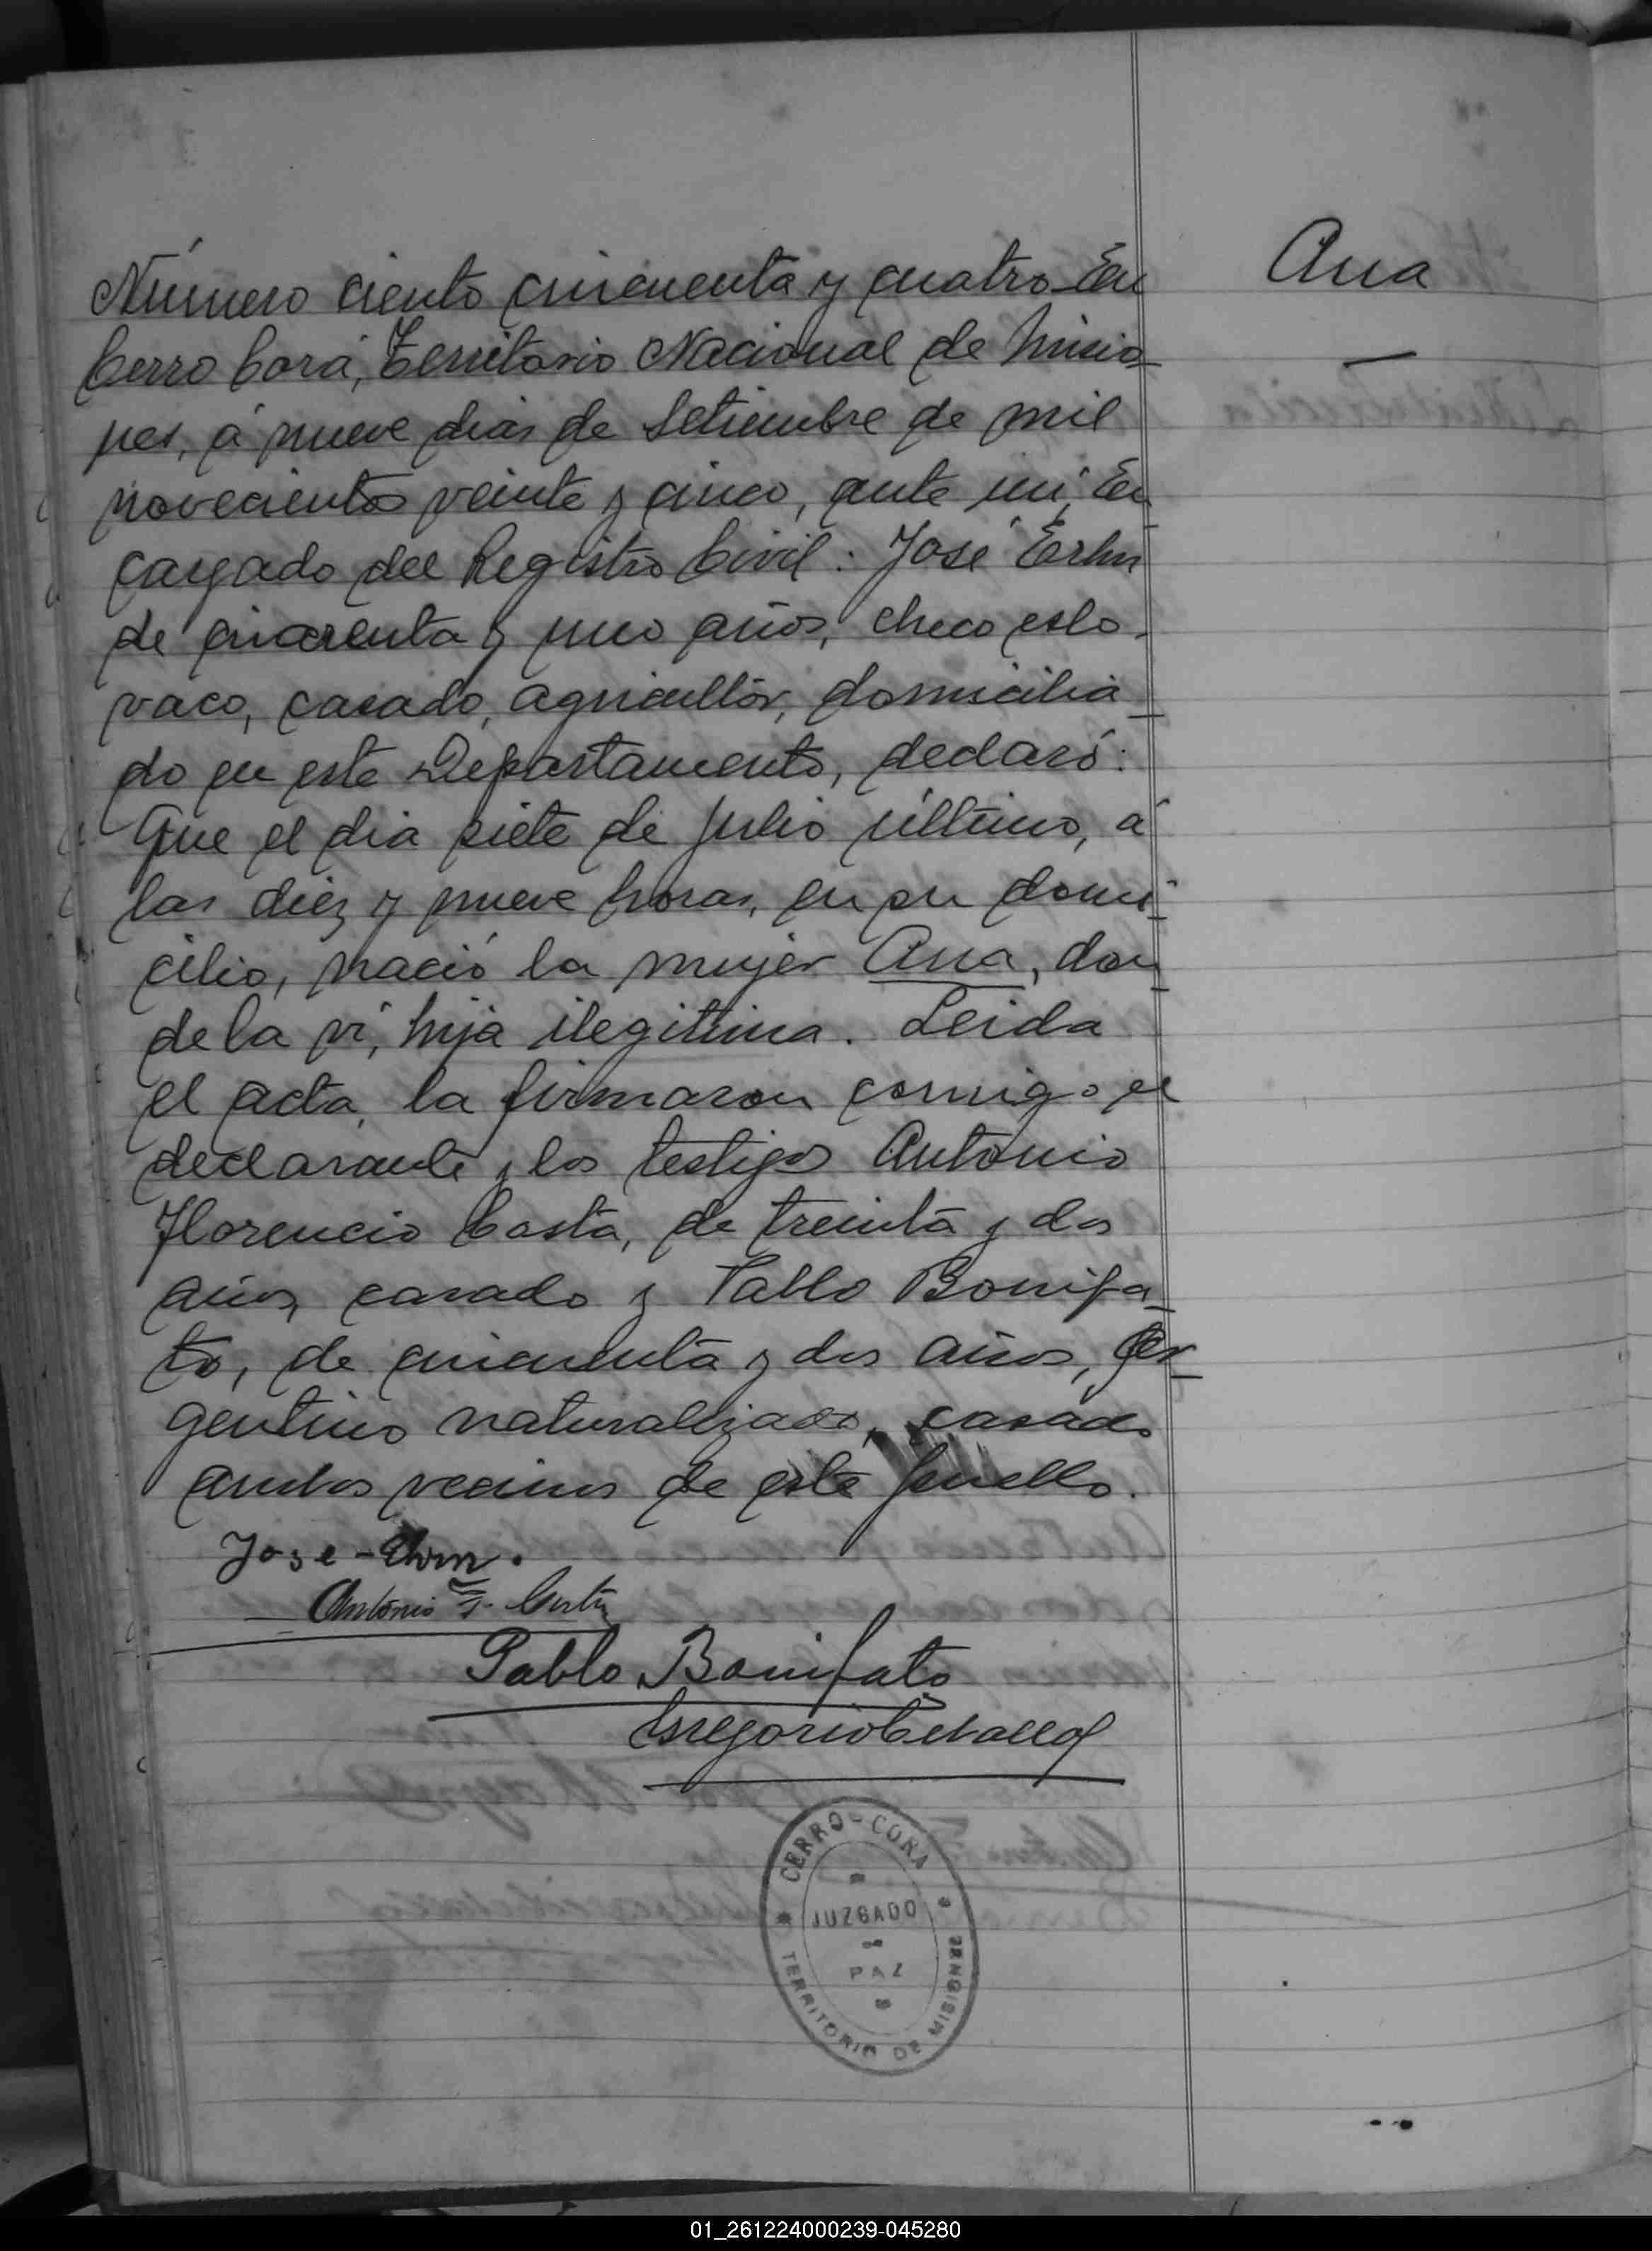 Ana
Número ciento cincuenta y cuatro En
Cerro Corá, Territorio Nacional de Misio-
nes, á nueve dias de Setiembre de mil
novecientos veinte y cinco, ante mi, En-
cargado del Registro Civil: José
de cuarenta y uno años, checo eslo-
vaco, casado, agricultor, domicilia-
do en este Departamento, declaró:
Que el dia siete de Julio último, á
las diez y nueve horas, en su domi-
cilio, nació la mujer Ana, don-
de la vi, hija ilegitima. Leida
el acta, la firmaron conmigo el
declarante y los testigos Antonio
Florencio Costa, de treinta y dos
años, casado y Pablo Bonifa-
to, de cincuenta y dos años, ar-
gentino naturalizado, casado
ambos vecinos de este pueblo.
Jose -
Antonio F. Costa
Pablo Bonifato
Gregorio
CERRO-CORA
JUZGADO
DE
PAZ
TERRITORIO DE MISIONES
01_261224000239-045280